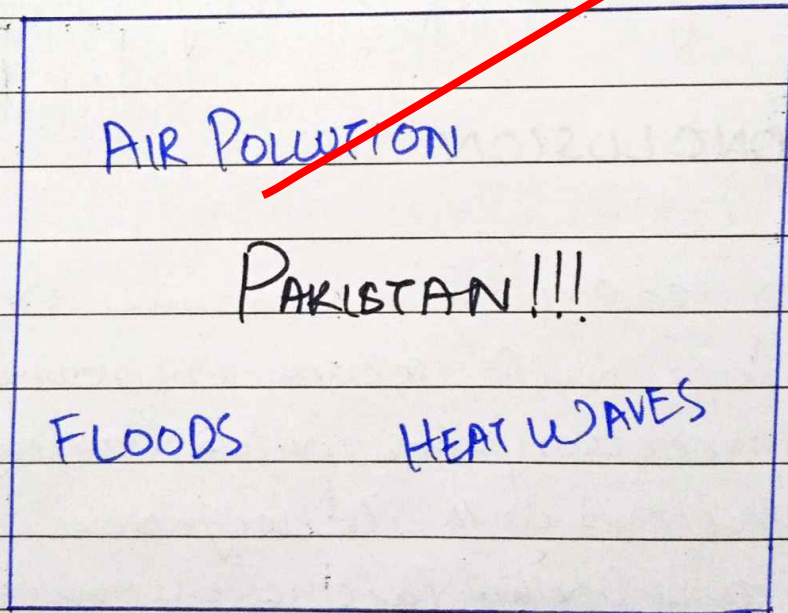 AIR POLLUTION
PAKISTAN!!!
FLOODS HEAT WAVES